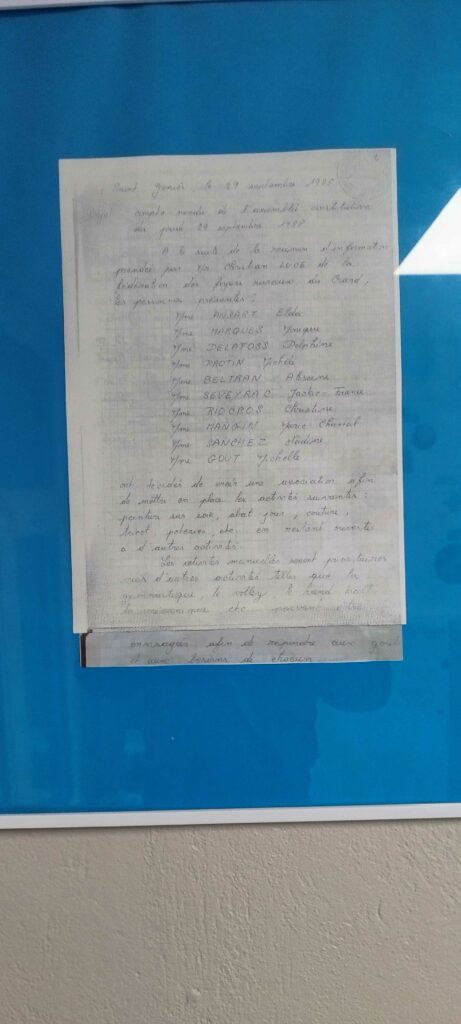 Saint Geniès, le 29 septembre 1988
Objet compte rendu de l'assemblée constitutive
du jeudi 29 septembre 1988
A la suite de la réunion d'information
par Mr Christian LUCE de la
Fédération des foyers ruraux du Gard,
les personnes présentes :
Mme ANSART Elda
Mme MARQUES
Mme DELAFOSS Delphine
Mme PROTIN Michèle
Mme BELTRAN
Mme SEVEYRAC Jackie France
Mme RIOCROS Christine
Mme MANGIN Marie Chantal
Mme SANCHEZ Nadine
Mme GOUT Michelle
ont décidés de créer une association afin
de mettre en place les activités suivantes :
peinture sur soie, abat jour, couture,
tricot, poteries, etc. en restant ouverte
à d'autres activités.
Les activités manuelles seront prioritaires
mais d'autres activités telles que la
gymnastique, le volley, le hand ball
la etc. pouvant être
envisagées afin de répondre aux gouts
et aux besoins de chacun